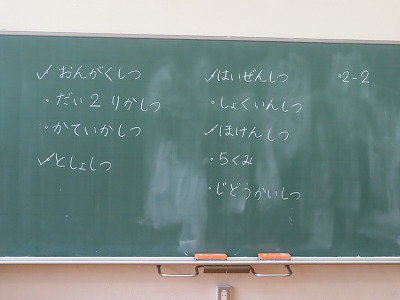 ✓おんがくしつ
・だい2りかしつ
・かていかしつ
✓としょしつ
✓はいぜんしつ
・しょくいんしつ
✓ほけんしつ
・5くみ
・じどうかいしつ
・2-2